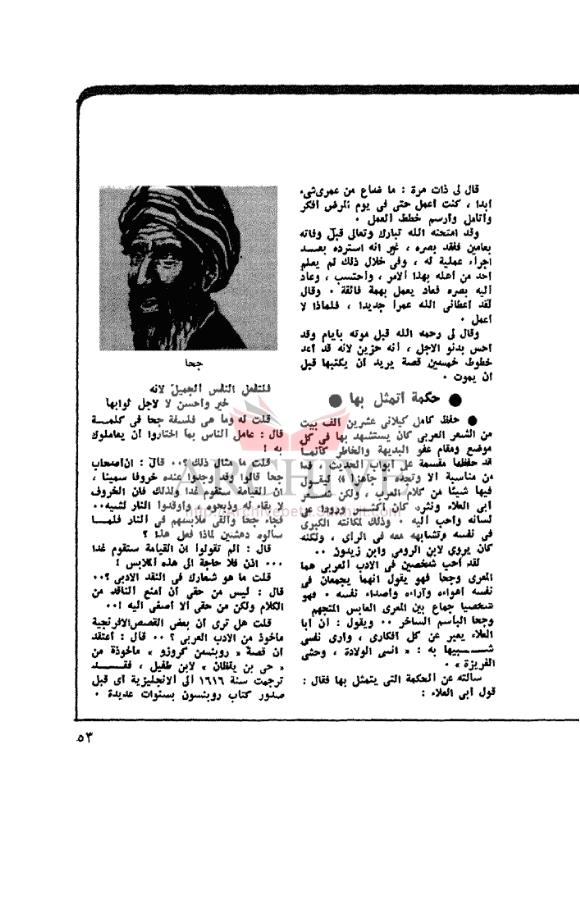 قال لى ذات مرة : ما ضاع من عمرى شىء
ابدا ، كنت اعمل حتى فى يوم المرض افكر
واتامل وارسم خطط العمل .
وقد امتحنه الله تبارك وتعالى قبل وفاته
بعامين ففقد بصره ، غير انه استرده بعسد
اجراء عملية له ، وفى خلال ذلك لم يعلم
احد من اهله بهذا الامر ، واحتسب ، وعاد
اليه بصره فعاد يعمل بهمة فائقة . وقال
لقد اعطانى الله عمرا جديدا ، فلماذا لا
اعمل .
وقال لى رحمه الله قبل موته بايام وقد
احس بدنو الاجل ، انه حزين لانه قد اعد
خطوط خمسين قصة يريد ان يكتبها قبل
ان يموت .
● حكمة اتمثل بها ●
● حفظ كامل كيلانى عشرين الف بيت
من الشعر العربى كان يستشهد بها فى كل
موضع ومقام عفو البديهة والخاطر كانمسا
قد حفظها مقسمة على ابواب الحديث ، فما
من مناسبة الا وتجده « جاهزا » ليقول
فيها شيئا من كلام العرب ، ولكن شعسر
ابى العلاء ونثره كان اكثسر ورودا على
لسانه واحب اليه . وذلك لمكانته الكبرى
فى نفسه وتشابهه معه فى الراى ، ولكنه
كان يروى لابن الرومى وابن زيدون ..
لقد احب شخصين فى الادب العربى هما
المعرى وجحا فهو يقول انهما يجمعان فى
نفسه اهواءه وآراءه وأصداء نفسه . فهو
شخصيا جماع بين المعرى العابس المتجهم
وجحا الباسم الساخر .. ويقول : ان ابا
العلاء يعبر عن كل افكارى ، وارى نفسى
شسسبيها به : « انسى الولادة ، وحشى
الغريزة » .
سالته عن الحكمة التى يتمثل بها فقال :
قول ابى العلاء :
جحا
فلتفعل النفس الجميل لانه
خير واحسن لا لاجل ثوابها
قلت له وما هى فلسفة جحا فى كلمسة
قال : عامل الناس بما اختاروا ان يعاملوك
به !
قلت ما مثال ذلك ؟.. قال : ان اصحاب
جحا قالوا وقد وجدوا عنده خروفا سمينا ،
ان القيامة ستقوم غدا ولذلك فان الخروف
لا بقاء له وذبحوه ، واوقدوا النار لشيه..
فجاء جحا والقى ملابسهم فى النار فلمسا
سالوه دهشين لماذا فعل هذا ؟
قال : الم تقولوا ان القيامة ستقوم غدا
... اذن فلا حاجة الى هذه الملابس !
قلت ما هو شعارك فى النقد الادبى ؟..
قال : ليس من حقى ان امنع الناقد من
الكلام ولكن من حقى الا اصغى اليه !..
قلت هل ترى ان بعض القصص الافرنجية
ماخوذ من الادب العربى ؟ .. قال : اعتقد
ان قصة « روبنسن كروزو » ماخوذة من
« حى بن يقظان » لابن طفيل ، فقسسد
ترجمت سنة ١٦١٦ الى الانجليزية اى قبل
صدور كتاب روبنسون بسنوات عديدة .
ARCHIVE
٥٣